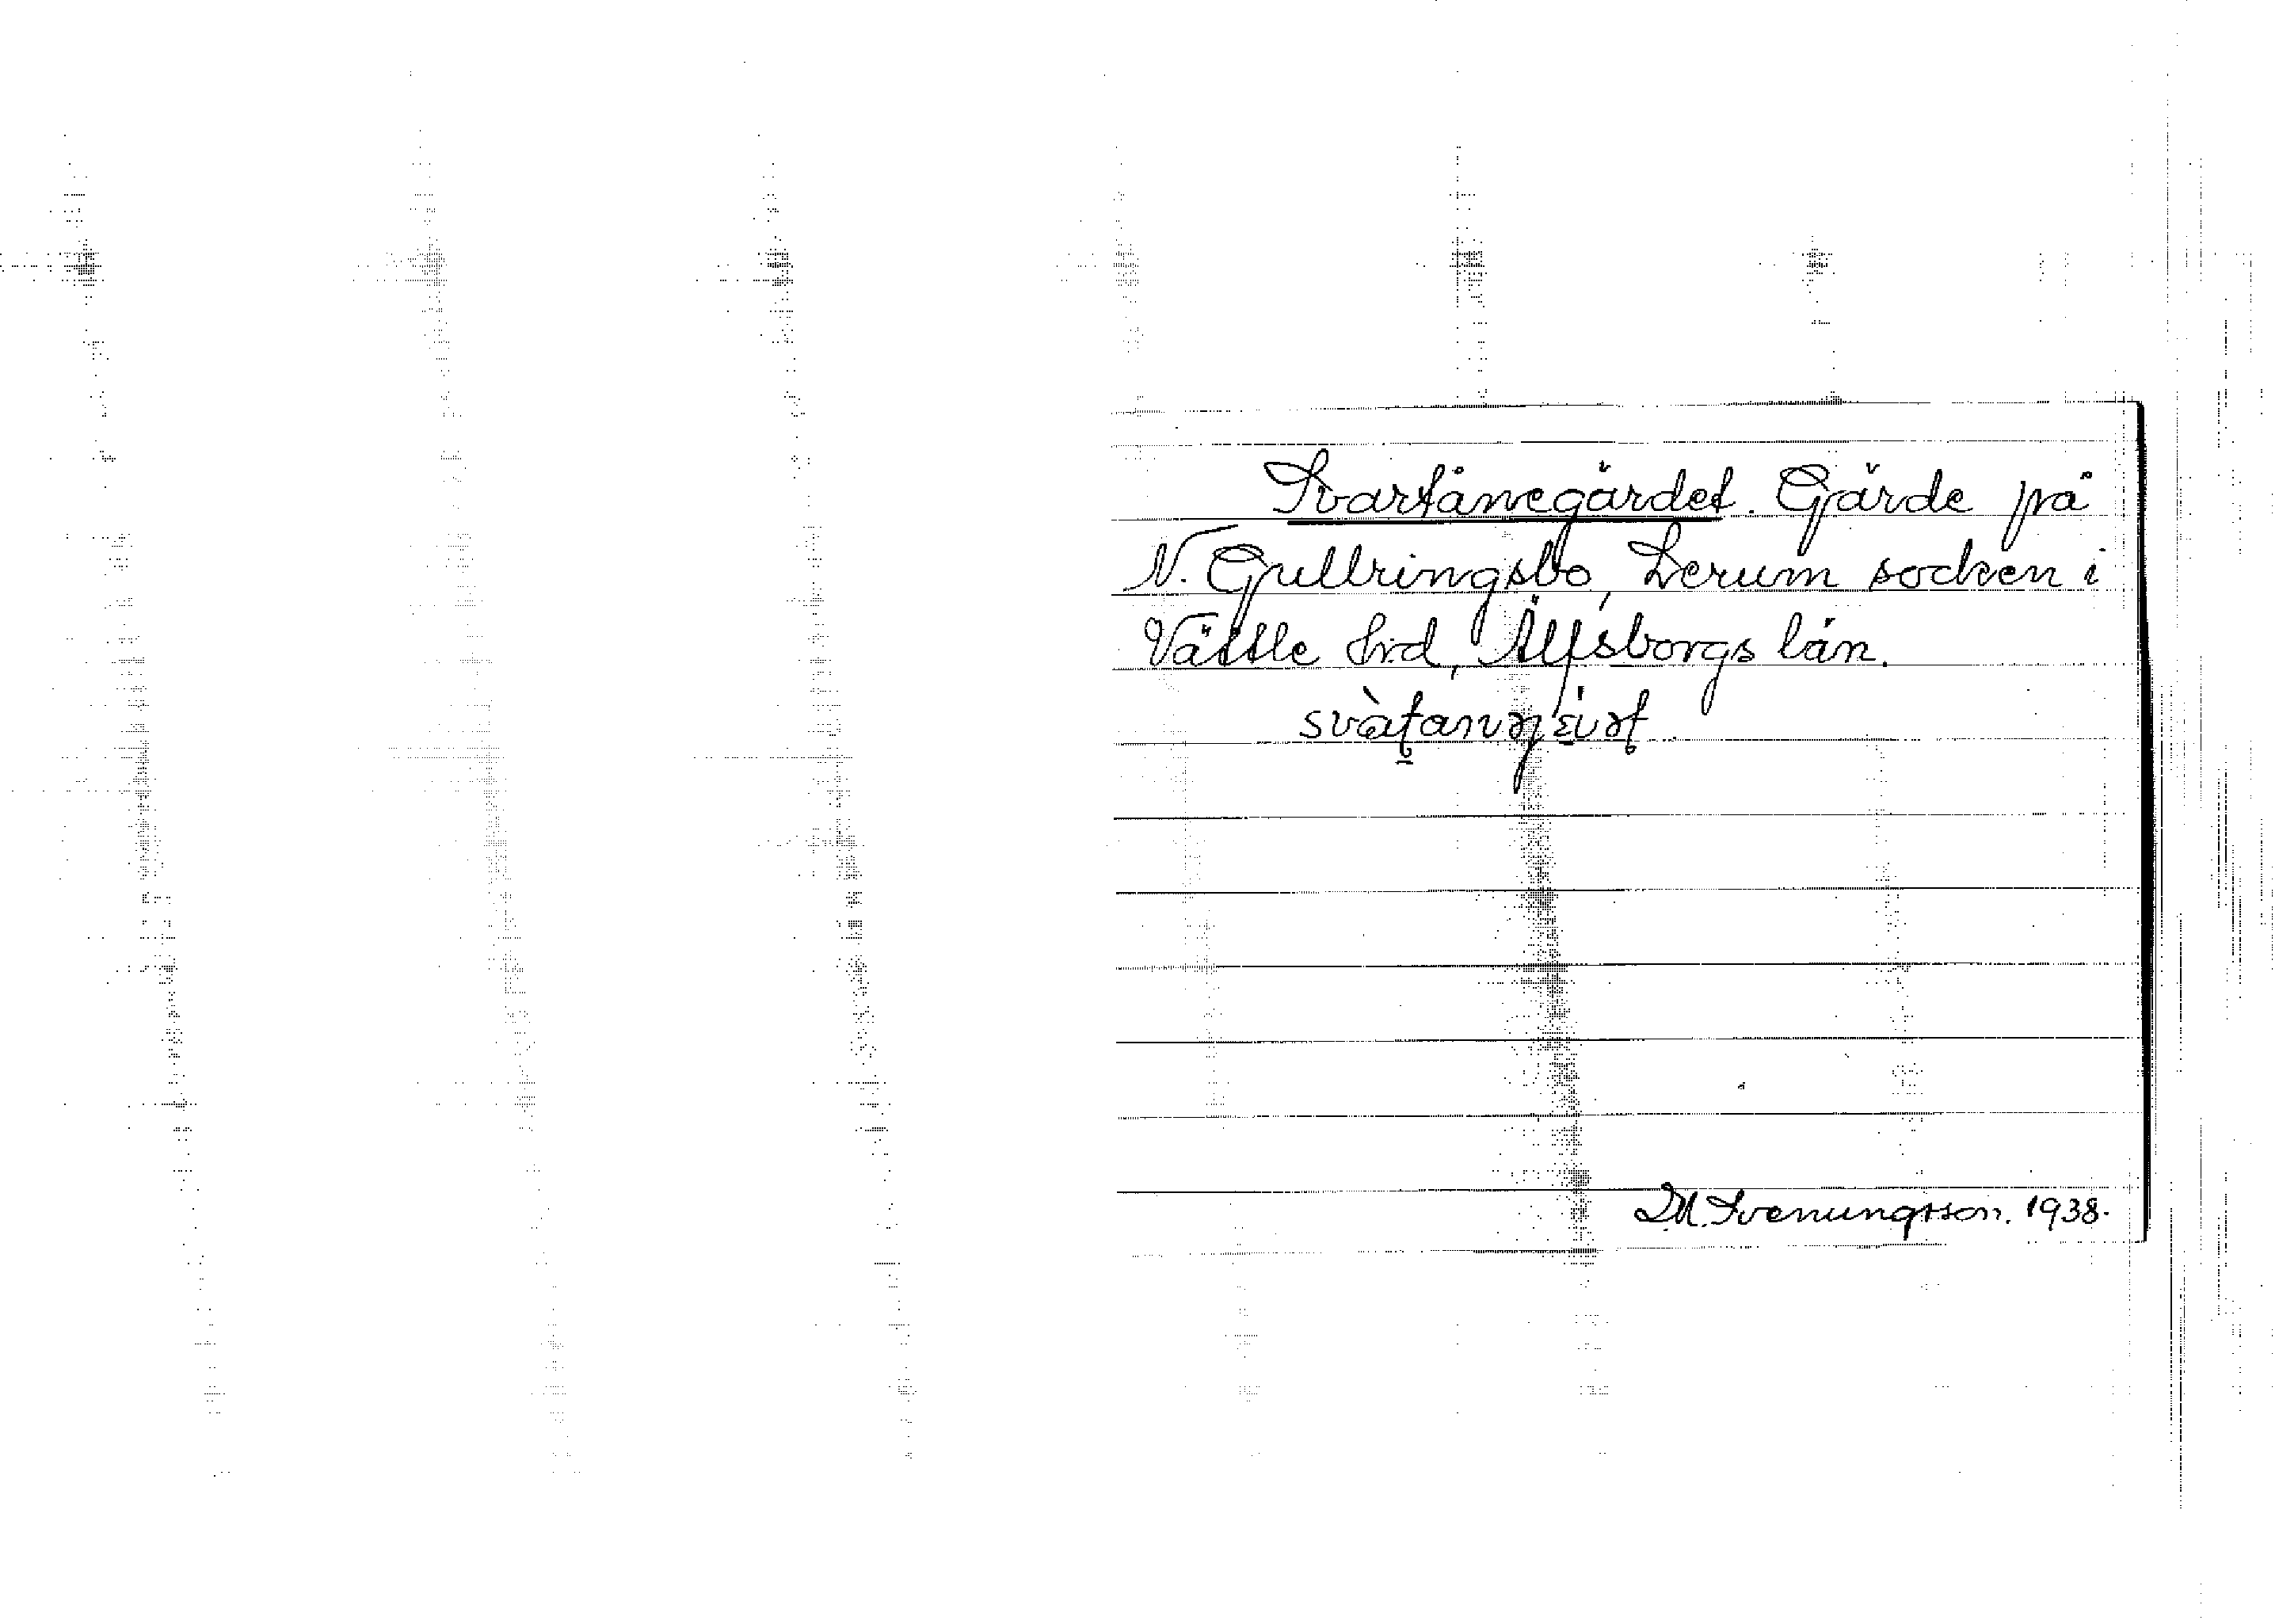 Svartånegärdet. Gärde på
N. Gullringsbo, Lerum socken i
Vättle hrd, Älfsborgs län.
D.M. Svenungsson. 1938.